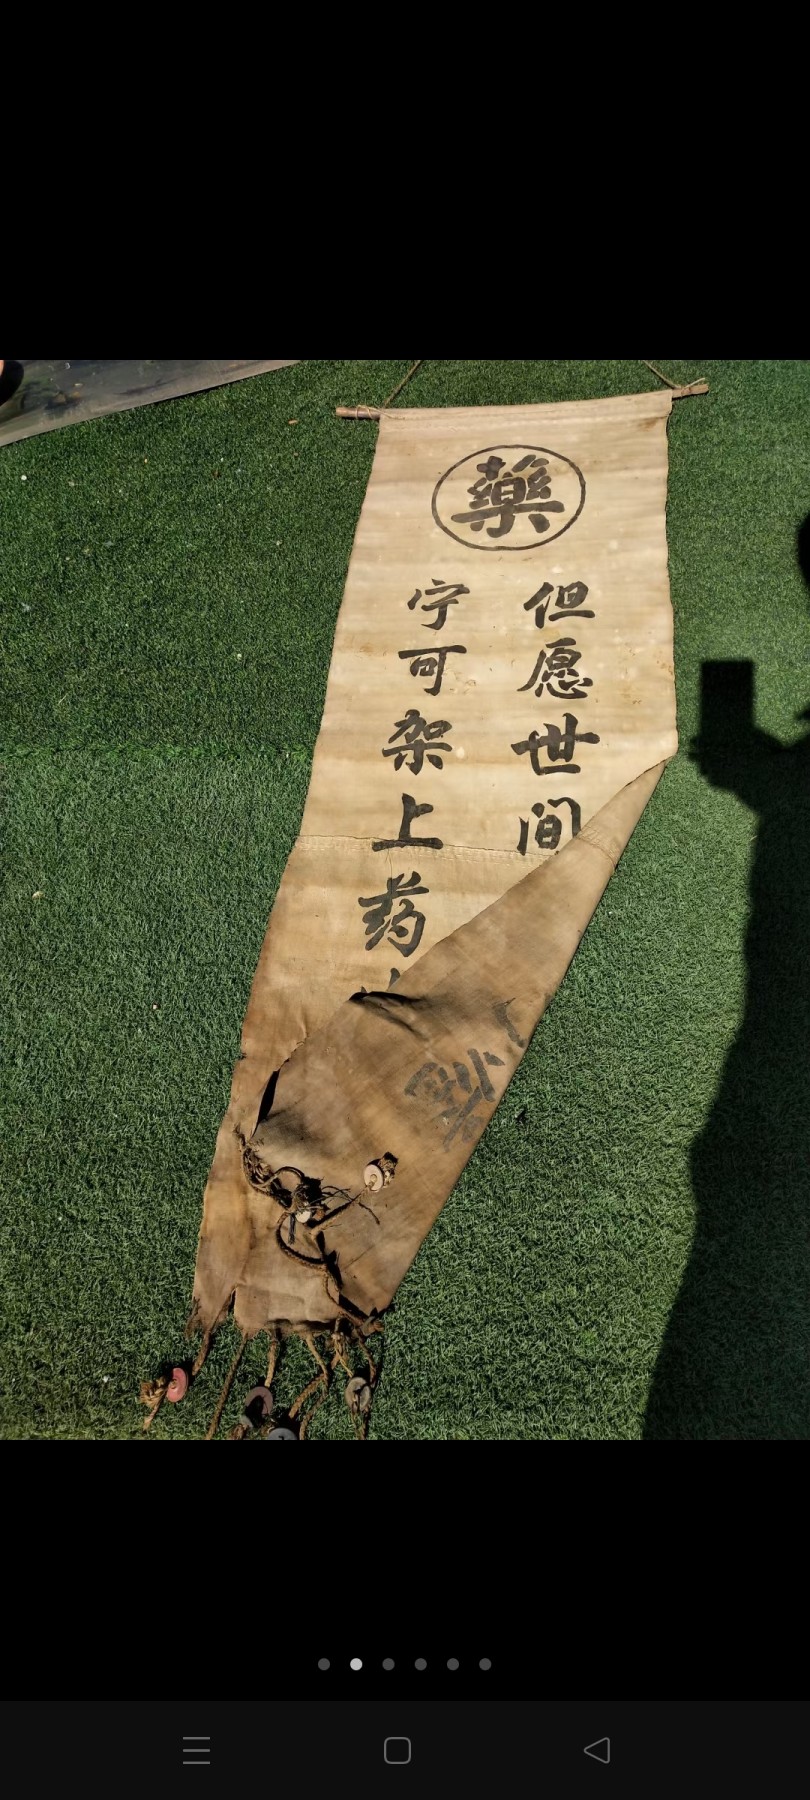 藥
但愿世间
宁可架上药